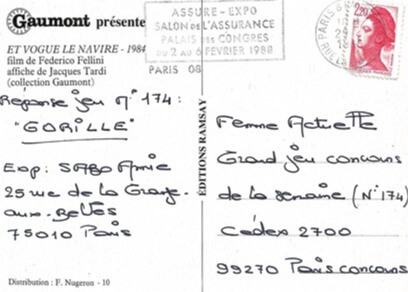 Gaumont présente
ET VOGUE LE NAVIRE - 1984
film de Federico Fellini
affiche de Jacques Tardi
(collection Gaumont)
ASSURE-EXPO
SALON DE L'ASSURANCE
PALAIS DES CONGRES
DU 2 AU 6 FEVRIER 1988
PARIS 08
PARIS
2,20
Réponse jeu N° 174:
"GORILLE"
Exp: SABO Annie
25 rue de la Grange-
aux-Belles
75010 Paris
EDITIONS RAMSAY
Femme Actuelle
Grand jeu concours
de la semaine (N°174)
Cédex 2700
99270 Paris concours
Distribution : F. Nugeron - 10